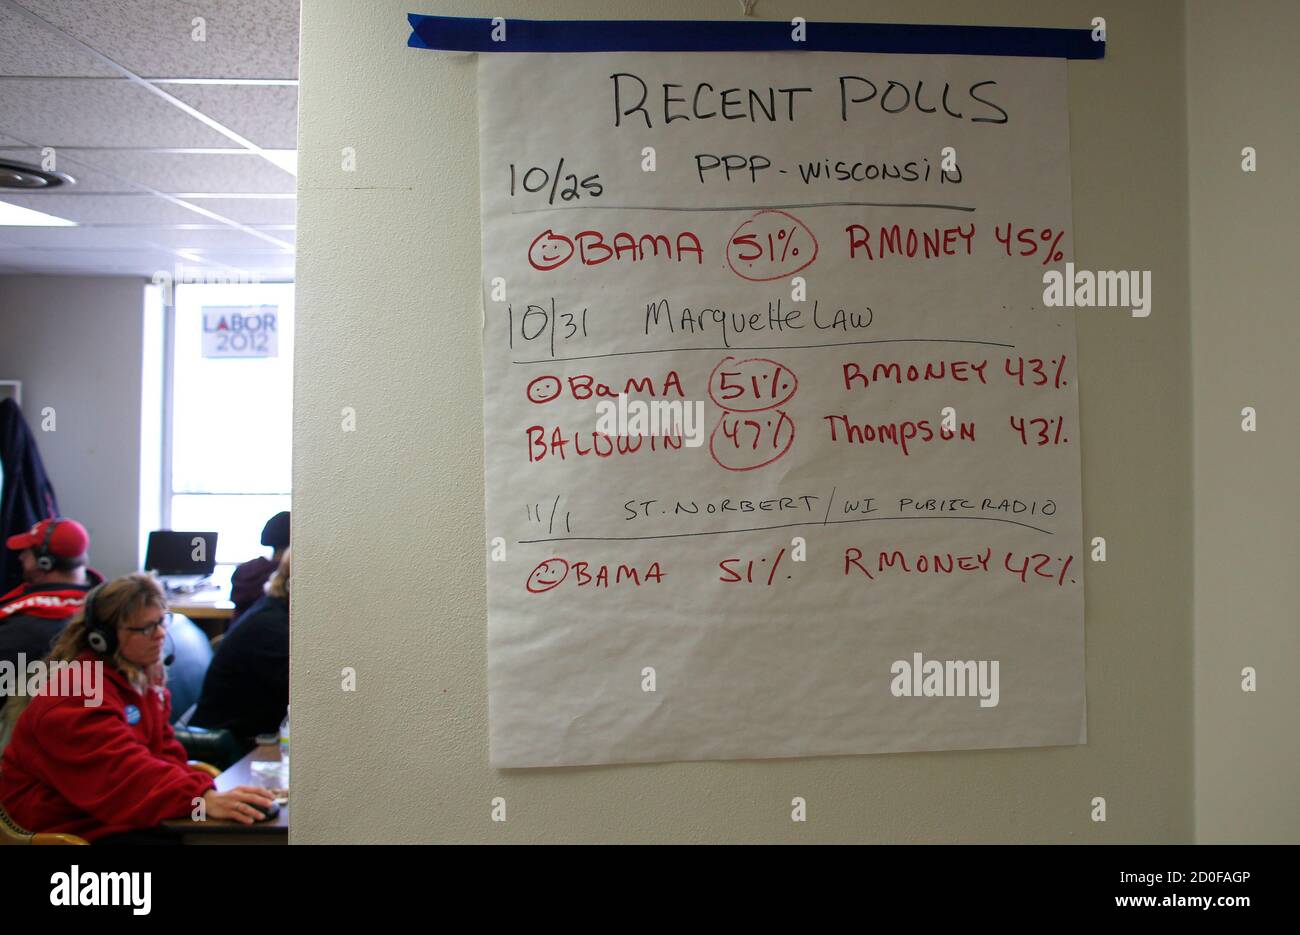 RECENT POLLS
10/25 PPP - WISCONSIN
OBAMA 51% RMONEY 45%
10/31 MARQUETTE LAW
OBAMA 51% RMONEY 43%
BALDWIN 47% THOMPSON 43%
11/1 ST. NORBERT / WI PUBLIC RADIO
OBAMA 51% RMONEY 42%
LABOR
2012
alamy
alamy
alamy
alamy
alamy
Image ID: 2D0FAGP
www.alamy.com